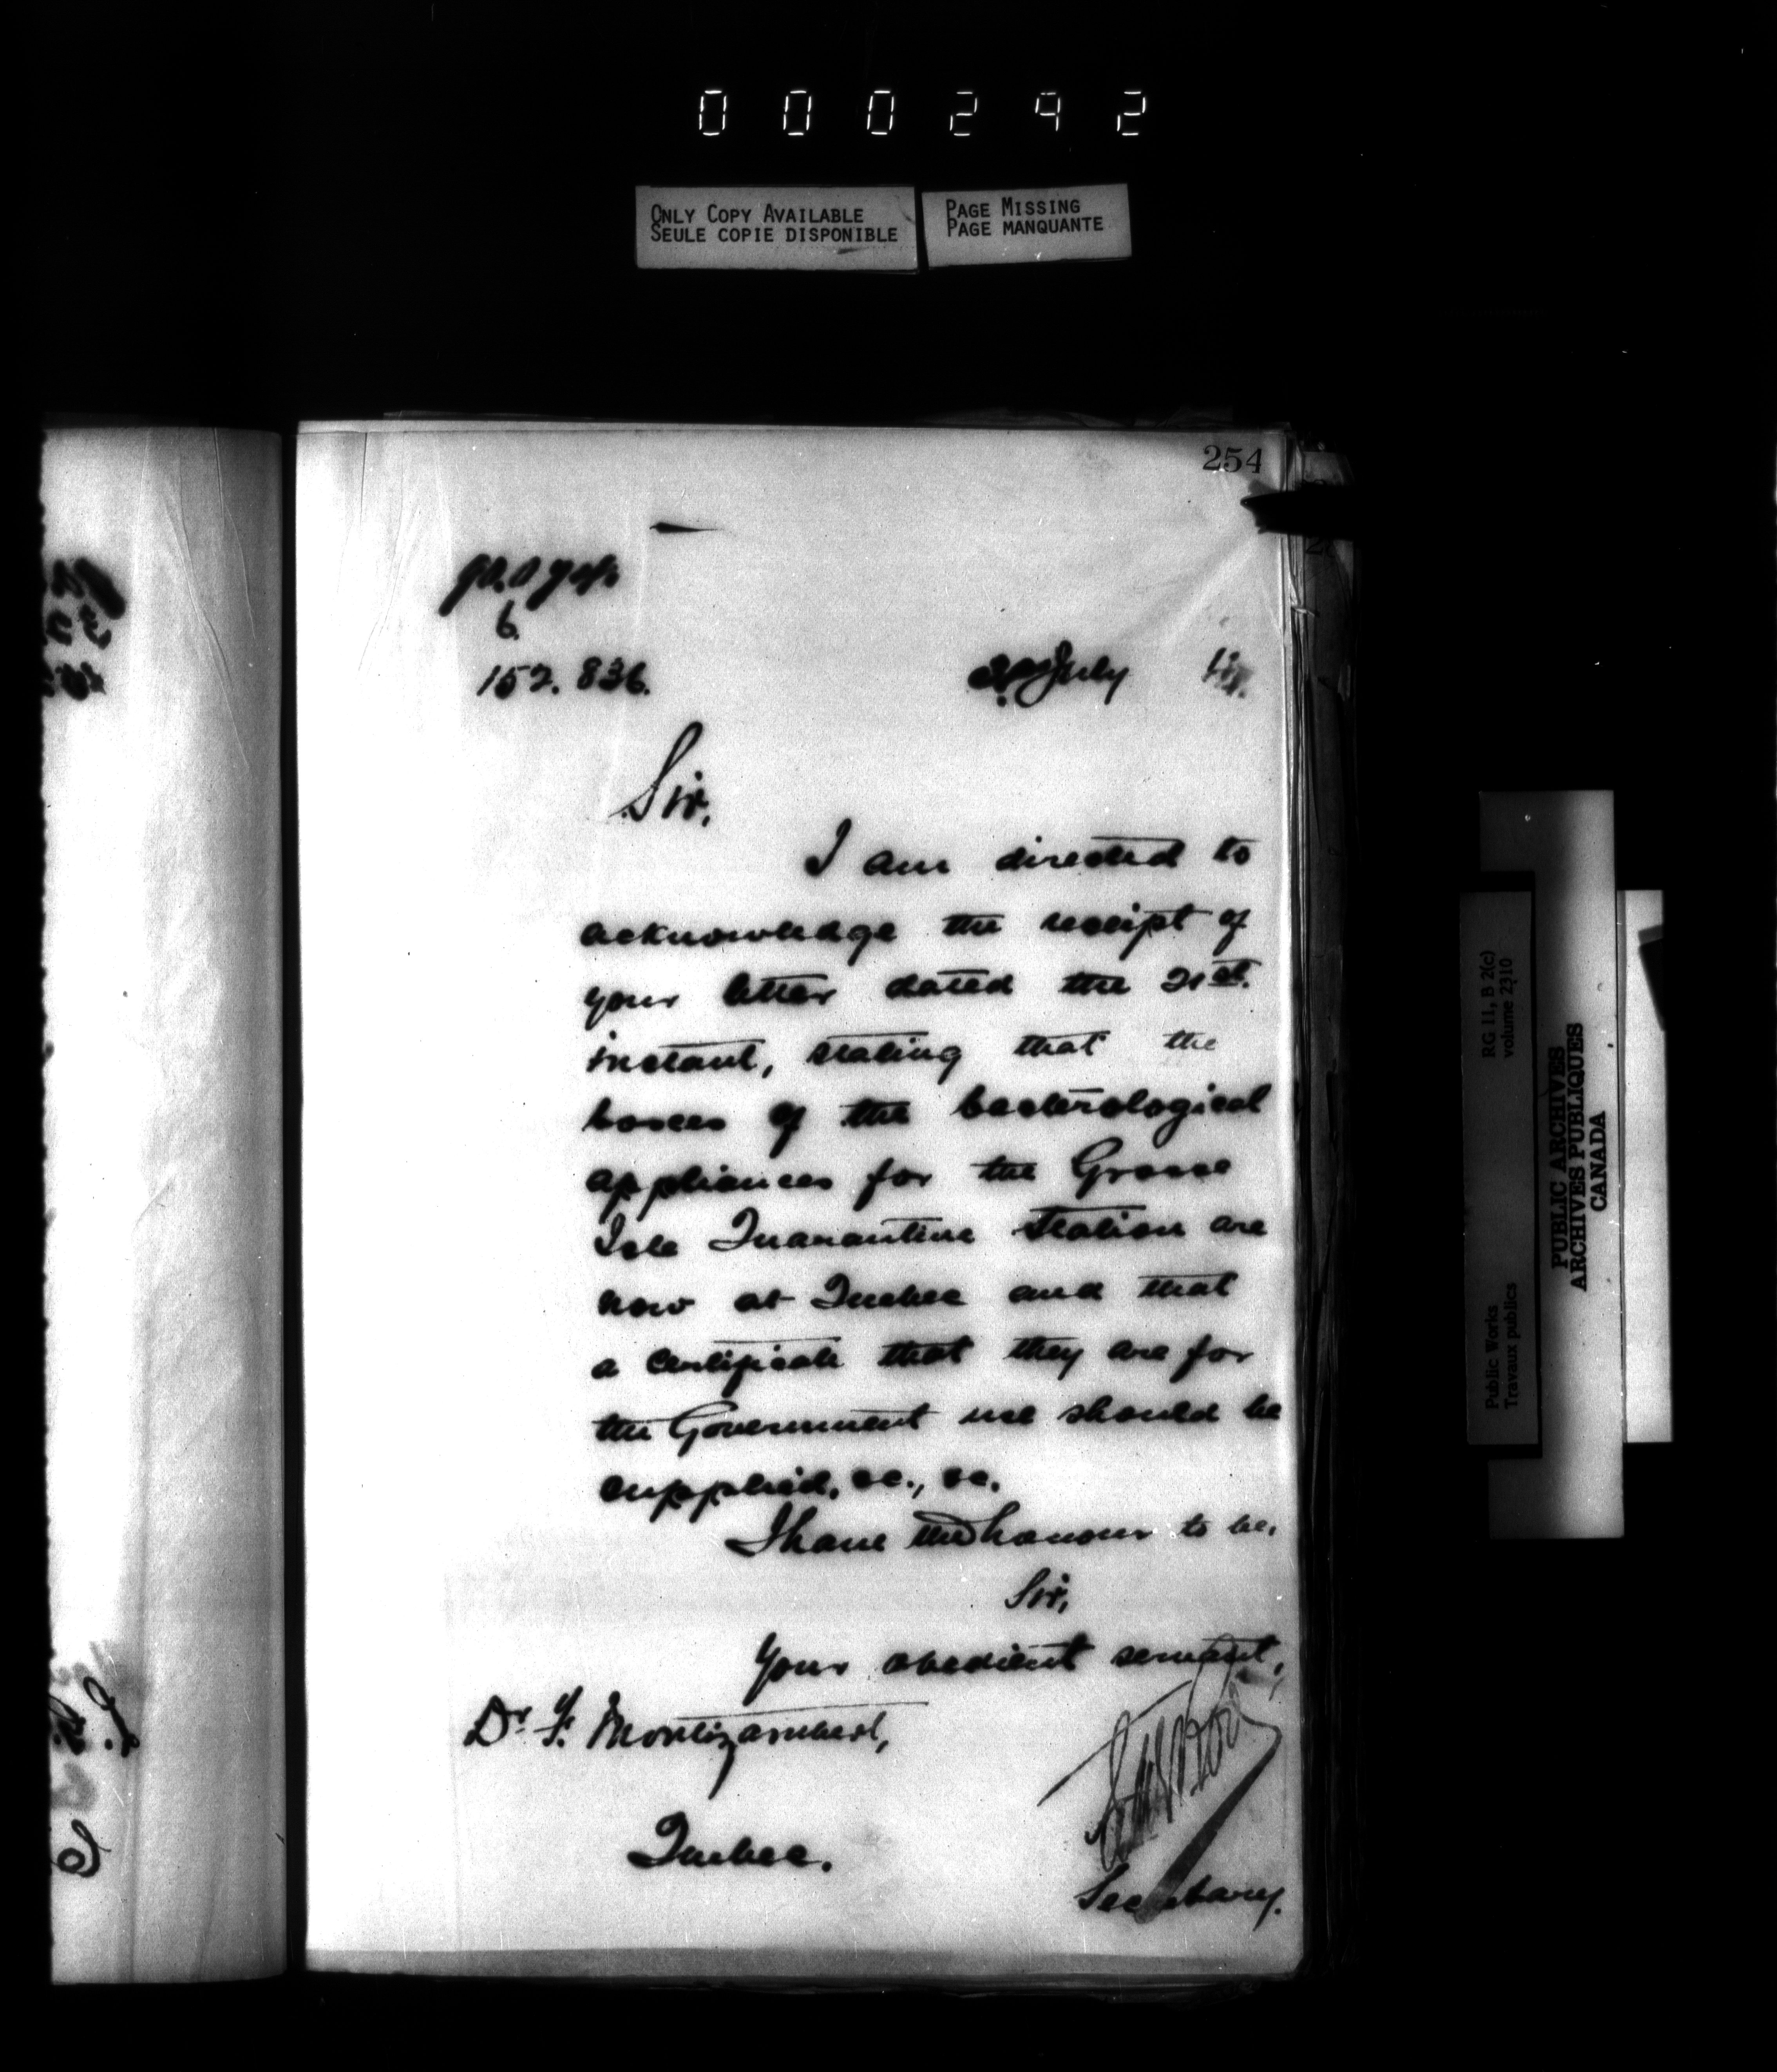 000292
ONLY COPY AVAILABLE
SEULE COPIE DISPONIBLE
PAGE MISSING
PAGE MANQUANTE
254
6.
152.836.
July
Sir,
I am directed to
acknowledge the receipt of
your letter dated the 21st.
instant, stating that the
boxes of the bacterological
appliances for the Grosse
Isle Quarantine station are
now at Quebec and that
a certificate that they are for
the Government use should be
supplied, &c., &c.
I have the honour to be,
Sir,
Your obedient servant,
Dr. F. Montizambert,
Quebec.
Secretary.
RG 11, B 2(c)
volume 2310
Public Works
Travaux publics
PUBLIC ARCHIVES
ARCHIVES PUBLIQUES
CANADA